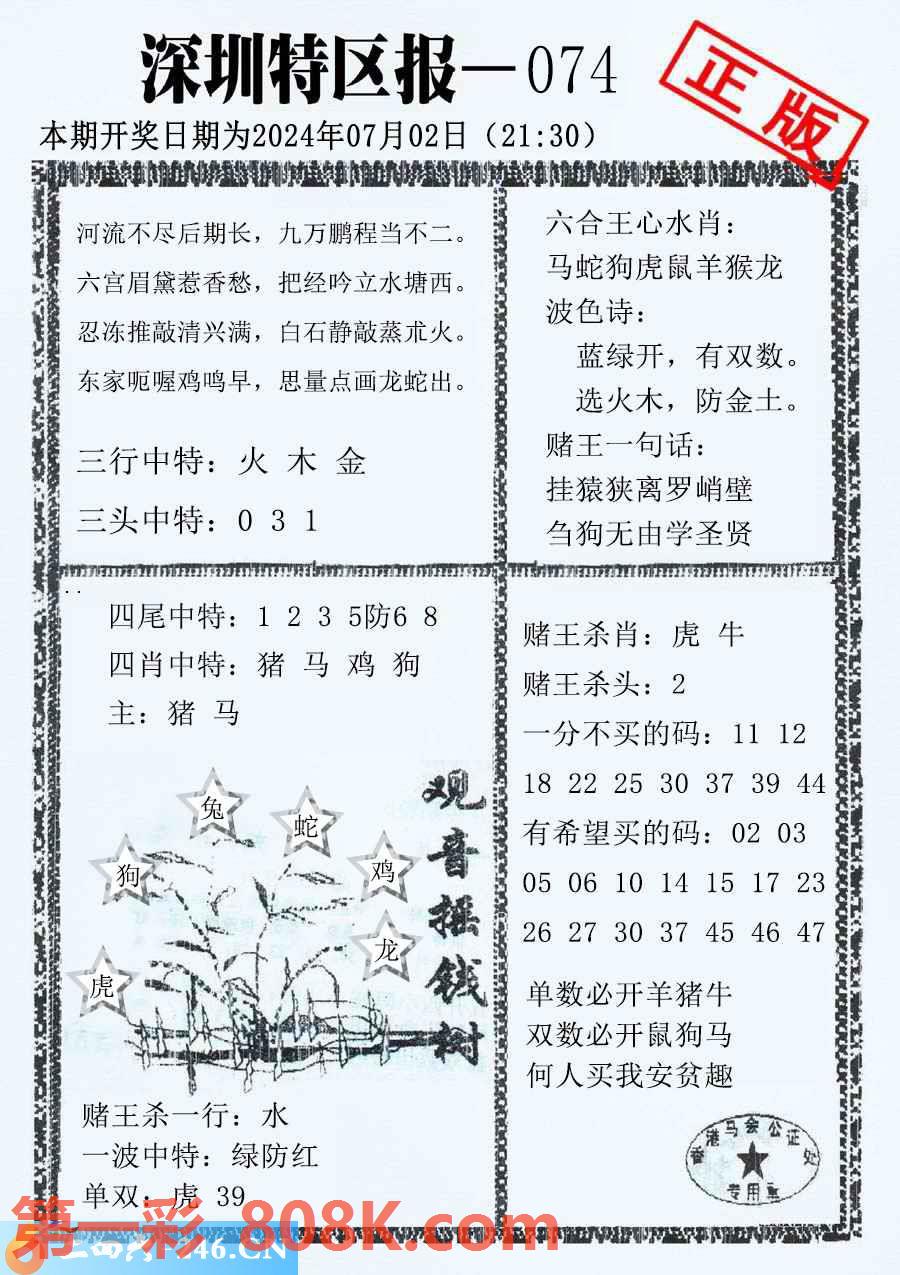 深圳特区报—074
正版
本期开奖日期为2024年07月02日（21:30）
河流不尽后期长，九万鹏程当不二。
六宫眉黛惹香愁，把经吟立水塘西。
忍冻推敲清兴满，白石静敲蒸朮火。
东家呃喔鸡鸣早，思量点画龙蛇出。
三行中特：火 木 金
三头中特：0 3 1
六合王心水肖：
马蛇狗虎鼠羊猴龙
波色诗：
蓝绿开，有双数。
选火木，防金土。
赌王一句话：
挂猿狭离罗峭壁
刍狗无由学圣贤
四尾中特：1 2 3 5防6 8
四肖中特：猪 马 鸡 狗
主：猪 马
兔
蛇
狗
鸡
龙
虎
观音摇钱树
赌王杀一行：水
一波中特：绿防红
单双：虎 39
赌王杀肖：虎 牛
赌王杀头：2
一分不买的码：11 12
18 22 25 30 37 39 44
有希望买的码：02 03
05 06 10 14 15 17 23
26 27 30 37 45 46 47
单数必开羊猪牛
双数必开鼠狗马
何人买我安贫趣
香港马会公证处
专用章
第一彩.808K.com
246.CN